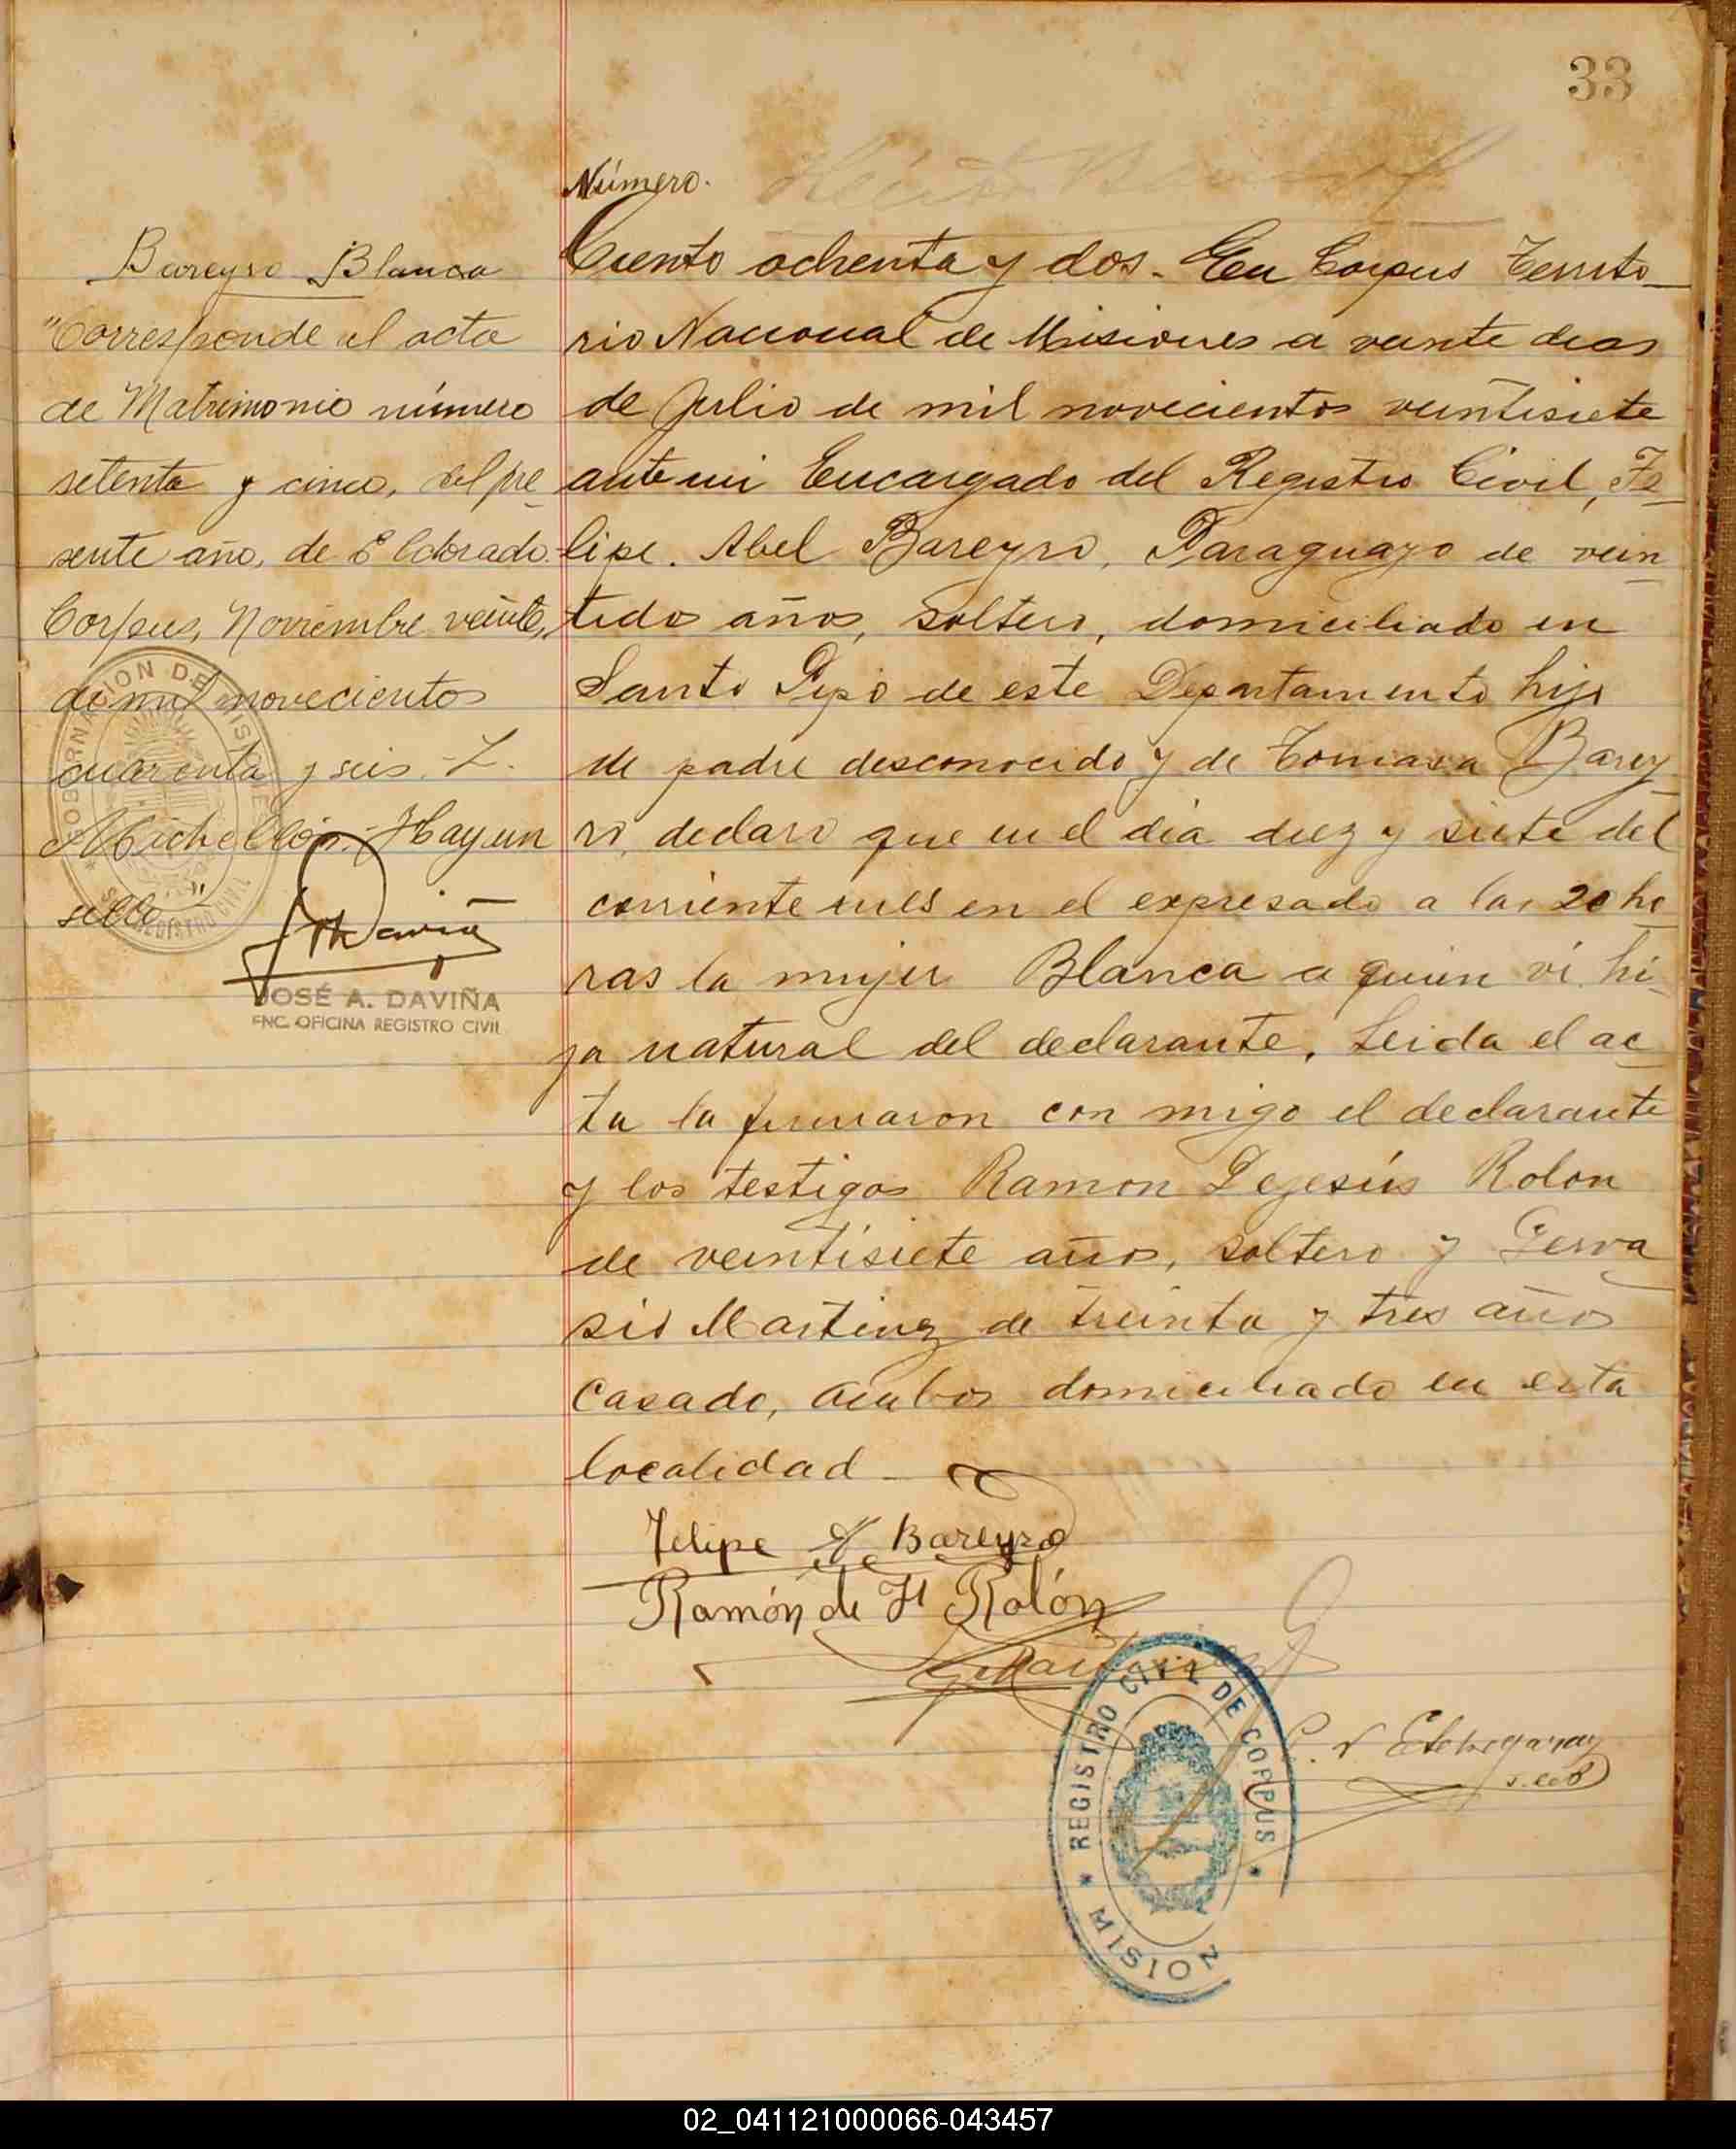 33
Número.
Ciento ochenta y dos. En Corpus Territo
rio Nacional de Misiones a veinte dias
de Julio de mil novecientos veintisiete
ante mi Encargado del Registro Civil, Fe
lipe. Abel Bareyro, Paraguayo de vein
tidos años, soltero, domiciliado en
Santo Pipó de este Departamento hijo
de padre desconocido y de Tomasa Barey
ro, declaro que en el dia diez y siete del
corriente mes en el expresado a las 20 ho
ras la mujer Blanca a quien ví hi
ja natural del declarante. Leida el ac
ta la firmaron con migo el declarante
y los testigos Ramon Dejesús Rolon
de veintisiete años, soltero y Gerva
sio Martinez de treinta y tres años
casado, ambos domiciliado en esta
localidad
Felipe A Bareyro
Ramón de Js Rolón
Etchegaray
REGISTRO CIVIL DE CORPUS
MISION
Bareyro Blanca
"Corresponde al acta
de Matrimonio número
setenta y cinco, del pre
sente año, de Eldorado.
Corpus, Noviembre veinte,
de mil novecientos
cuarenta y seis. Z.
Michellón. Hay un
sello"
GOBERNACION DE MISIONES
REGISTRO CIVIL
JOSÉ A. DAVIÑA
ENC. OFICINA REGISTRO CIVIL
02_041121000066-043457